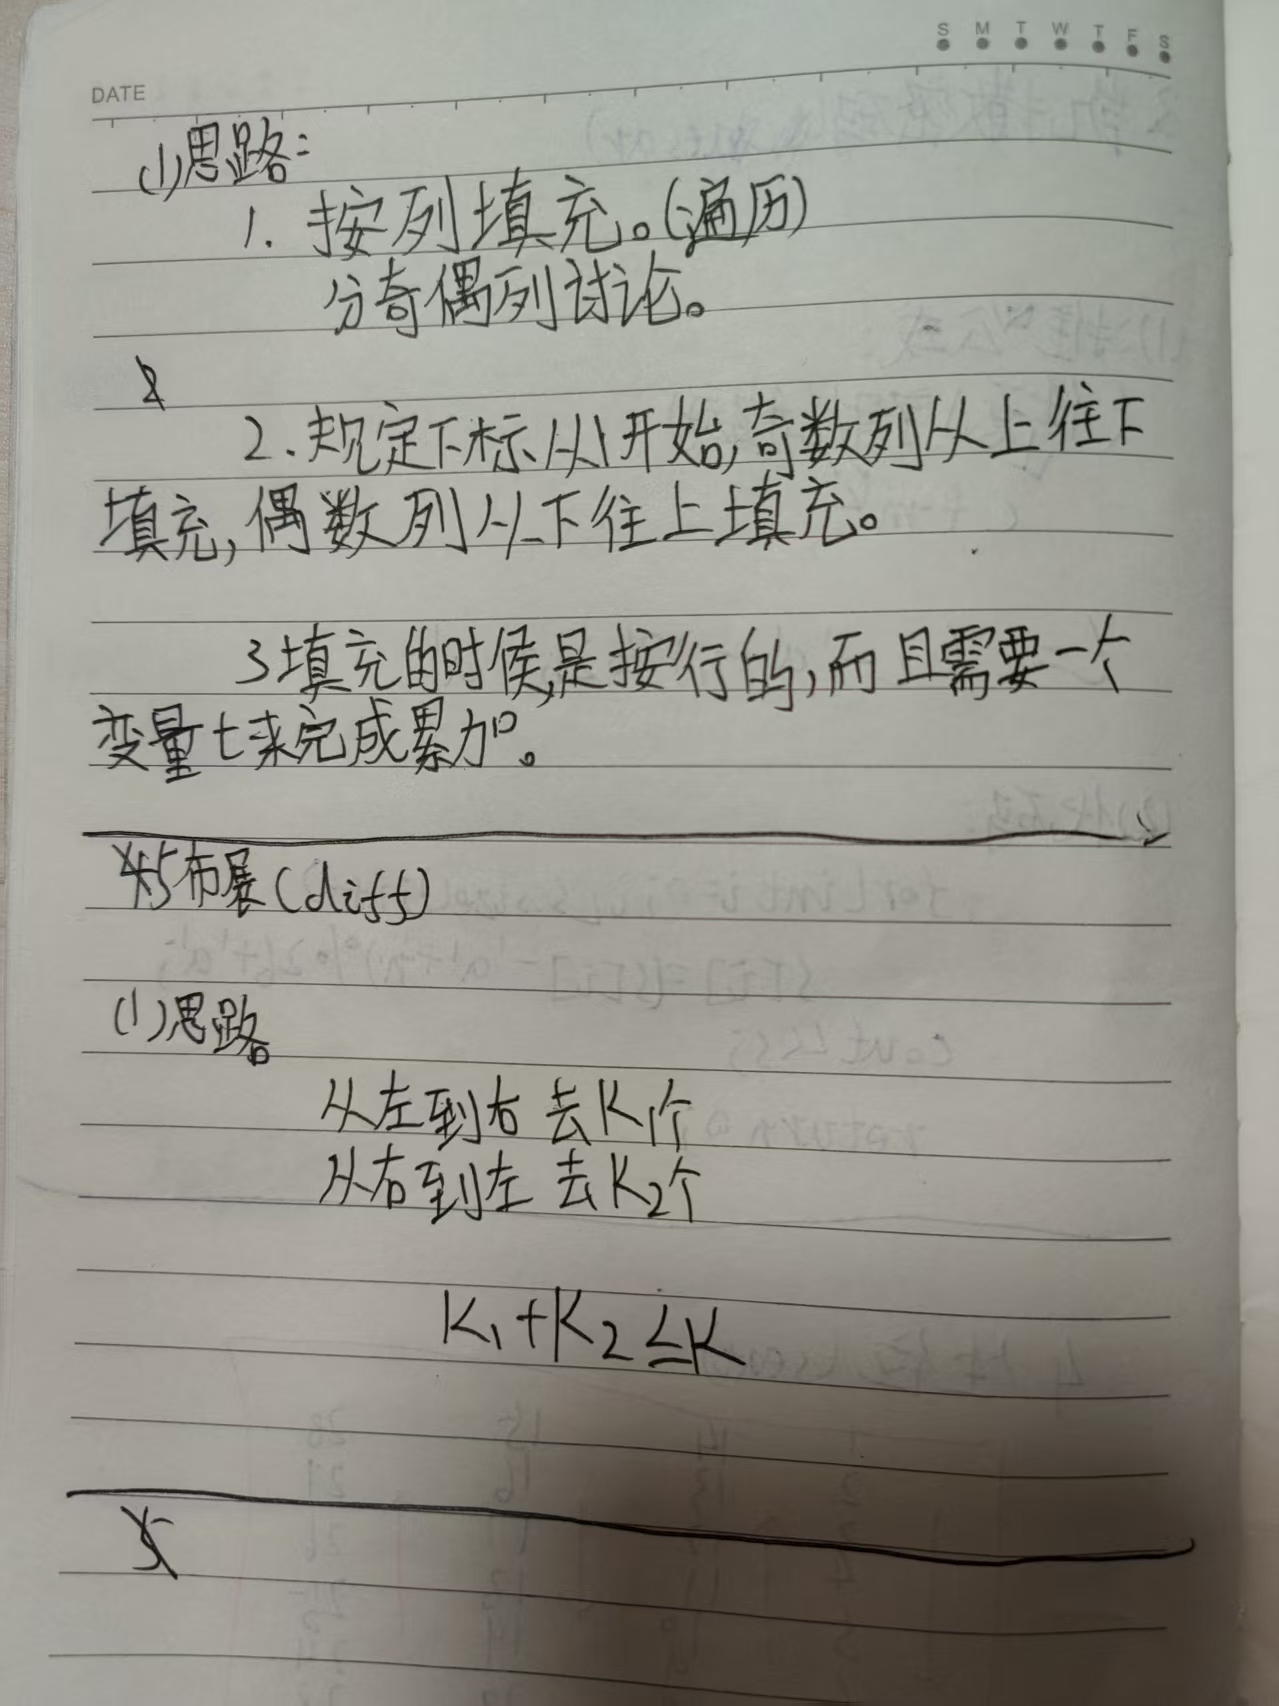 S M T W T F S
DATE
(1)思路:
1. 按列填充。(遍历)
分奇偶列讨论。
2.规定下标从1开始,奇数列从上往下
填充,偶数列从下往上填充。
3填充的时候,是按行的,而且需要一个
变量t来完成累加。
5布展(diff)
(1)思路。
从左到右 去K1个
从右到左 去K2个
K1+K2≤K